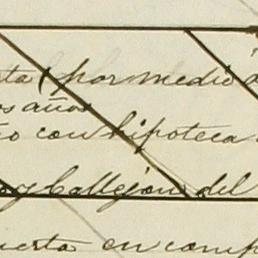 ta (por medio
os años
io con hipoteca
os y Callejon del
uerta en comp